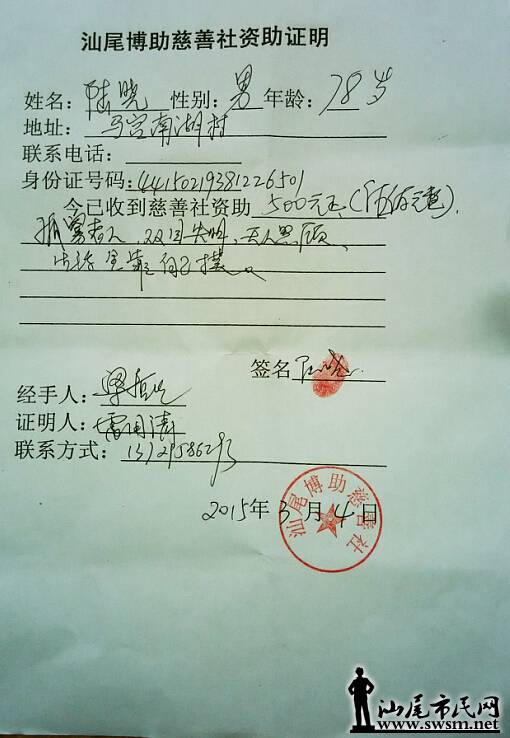 汕尾博助慈善社资助证明
姓名：陆晓 性别：男 年龄：78岁
地址：马宫南湖村
联系电话：
身份证号码：44150219381226501
今已收到慈善社资助 500元正(伍佰元意).
孤寡老人，双目失明，无人照顾、
生活全靠自己摸。
签名
经手人：
证明人：雷国涛
联系方式：
汕尾博助慈善社
2015年3月4日
汕尾市民网
www.swsm.net